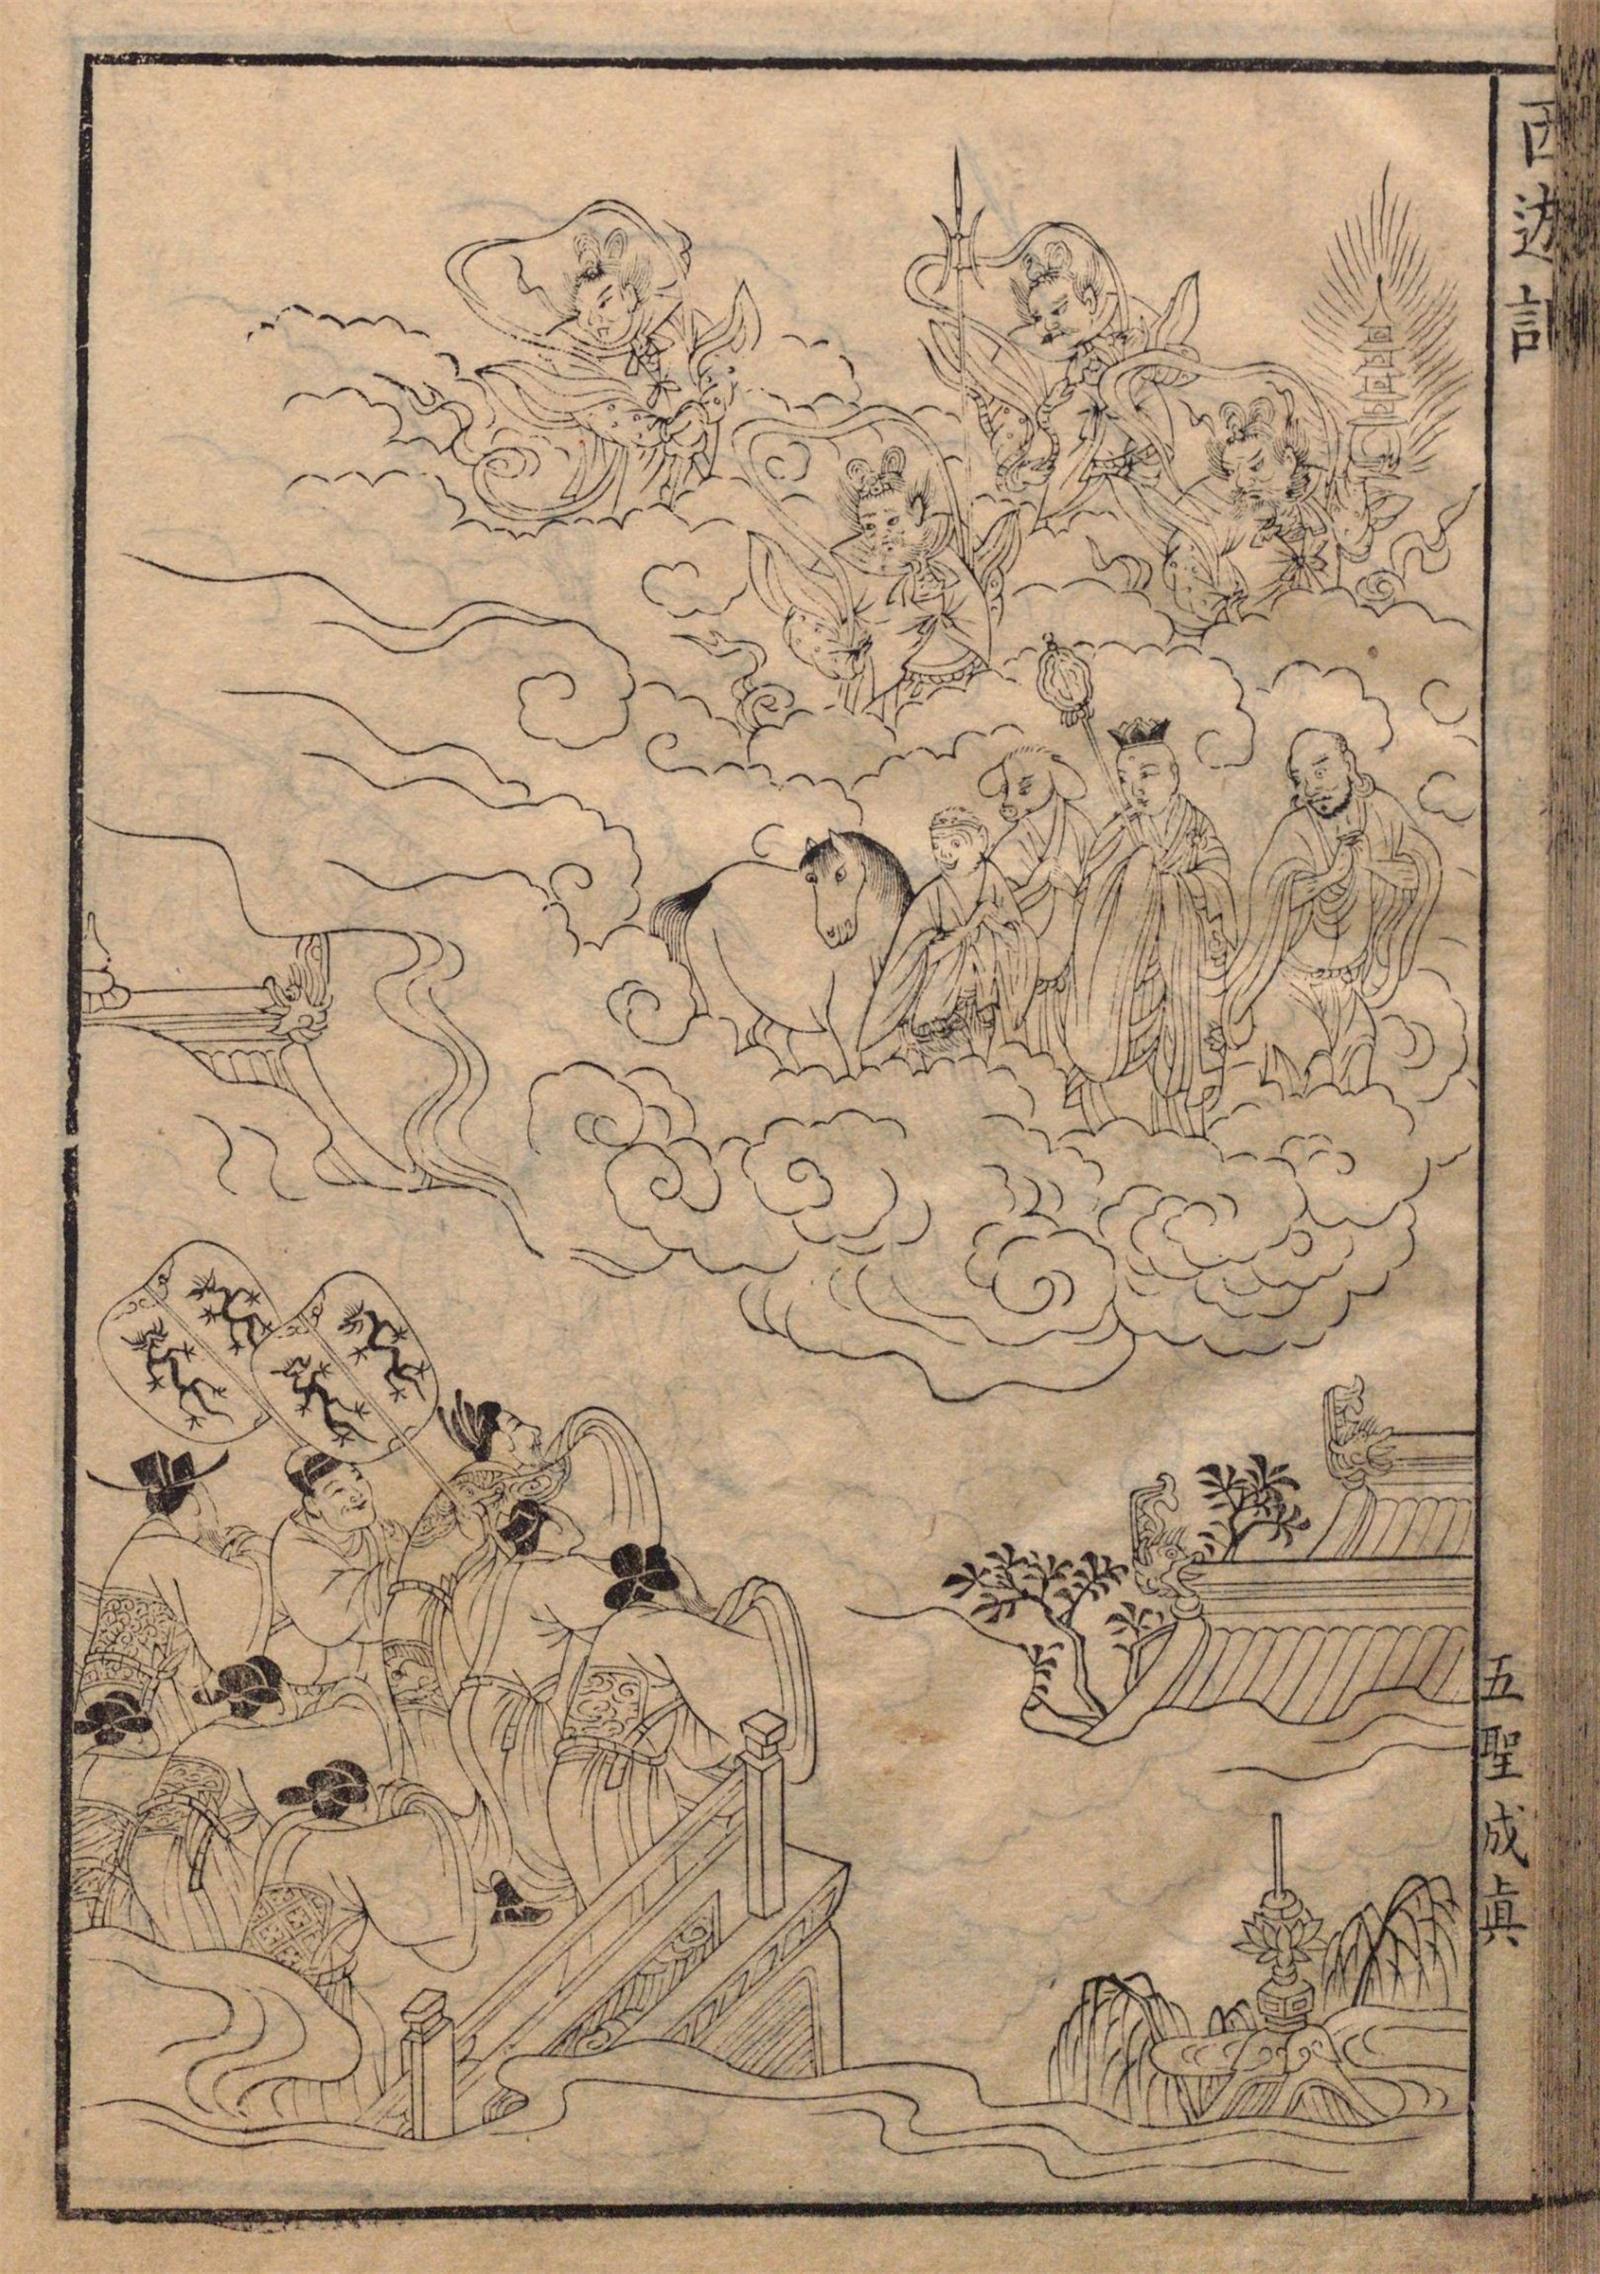 西遊記
五聖成真